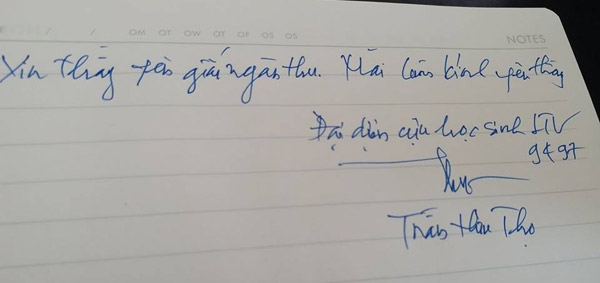 OM OT OW OT OF OS OS
NOTES
Xin thầy yên giấc ngàn thu. Mãi luôn kính yêu thầy
Đại diện cựu học sinh LTV
94 97
Trần Hữu Thọ